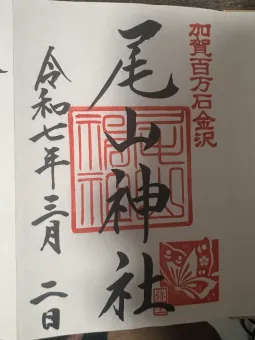 加賀百万石金沢
尾山神社
尾山神社
令和七年三月二日